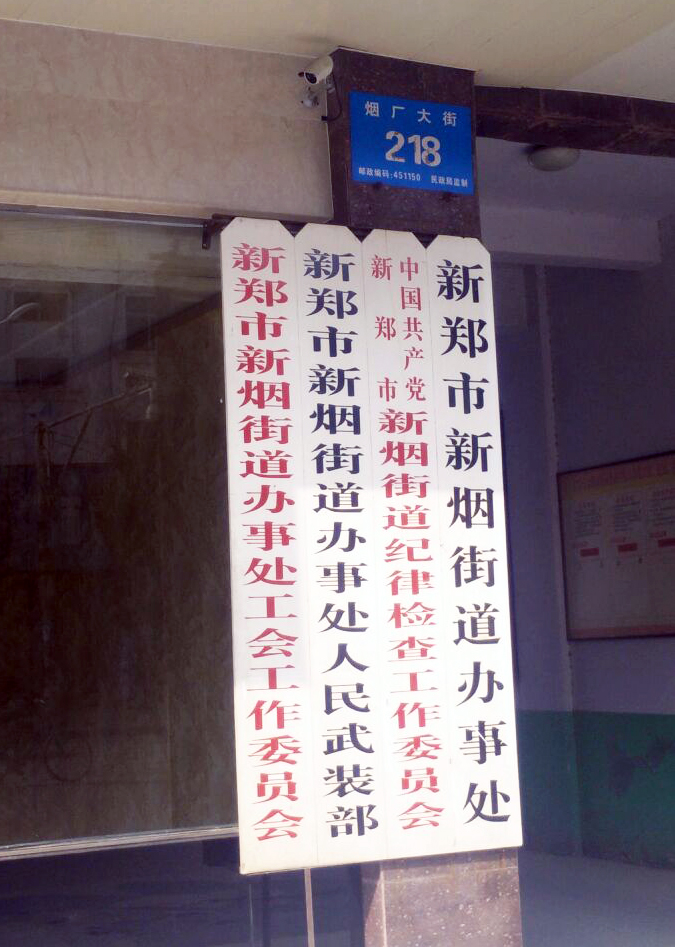 烟厂大街
218
邮政编码:451150 民政局监制
新郑市新烟街道办事处
中国共产党
新郑市
新烟街道纪律检查工作委员会
新郑市新烟街道办事处人民武装部
新郑市新烟街道办事处工会工作委员会